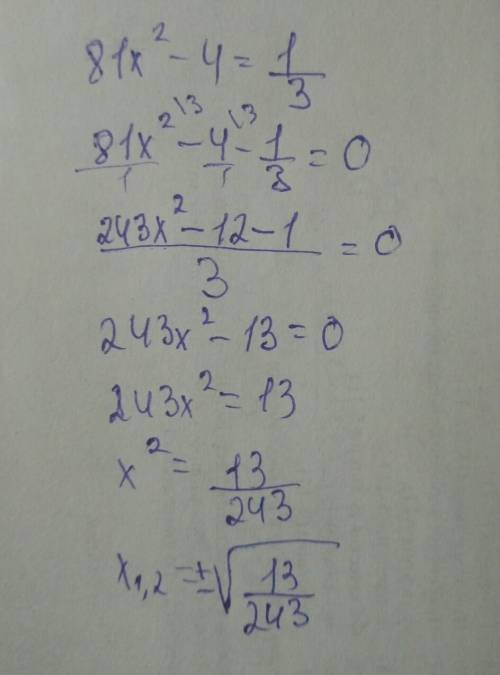 81x² - 4 = 1/3
81x²\3/1 - 4\3/1 - 1/3 = 0
(243x² - 12 - 1)/3 = 0
243x² - 13 = 0
243x² = 13
x² = 13/243
x₁,₂ = ±√(13/243)